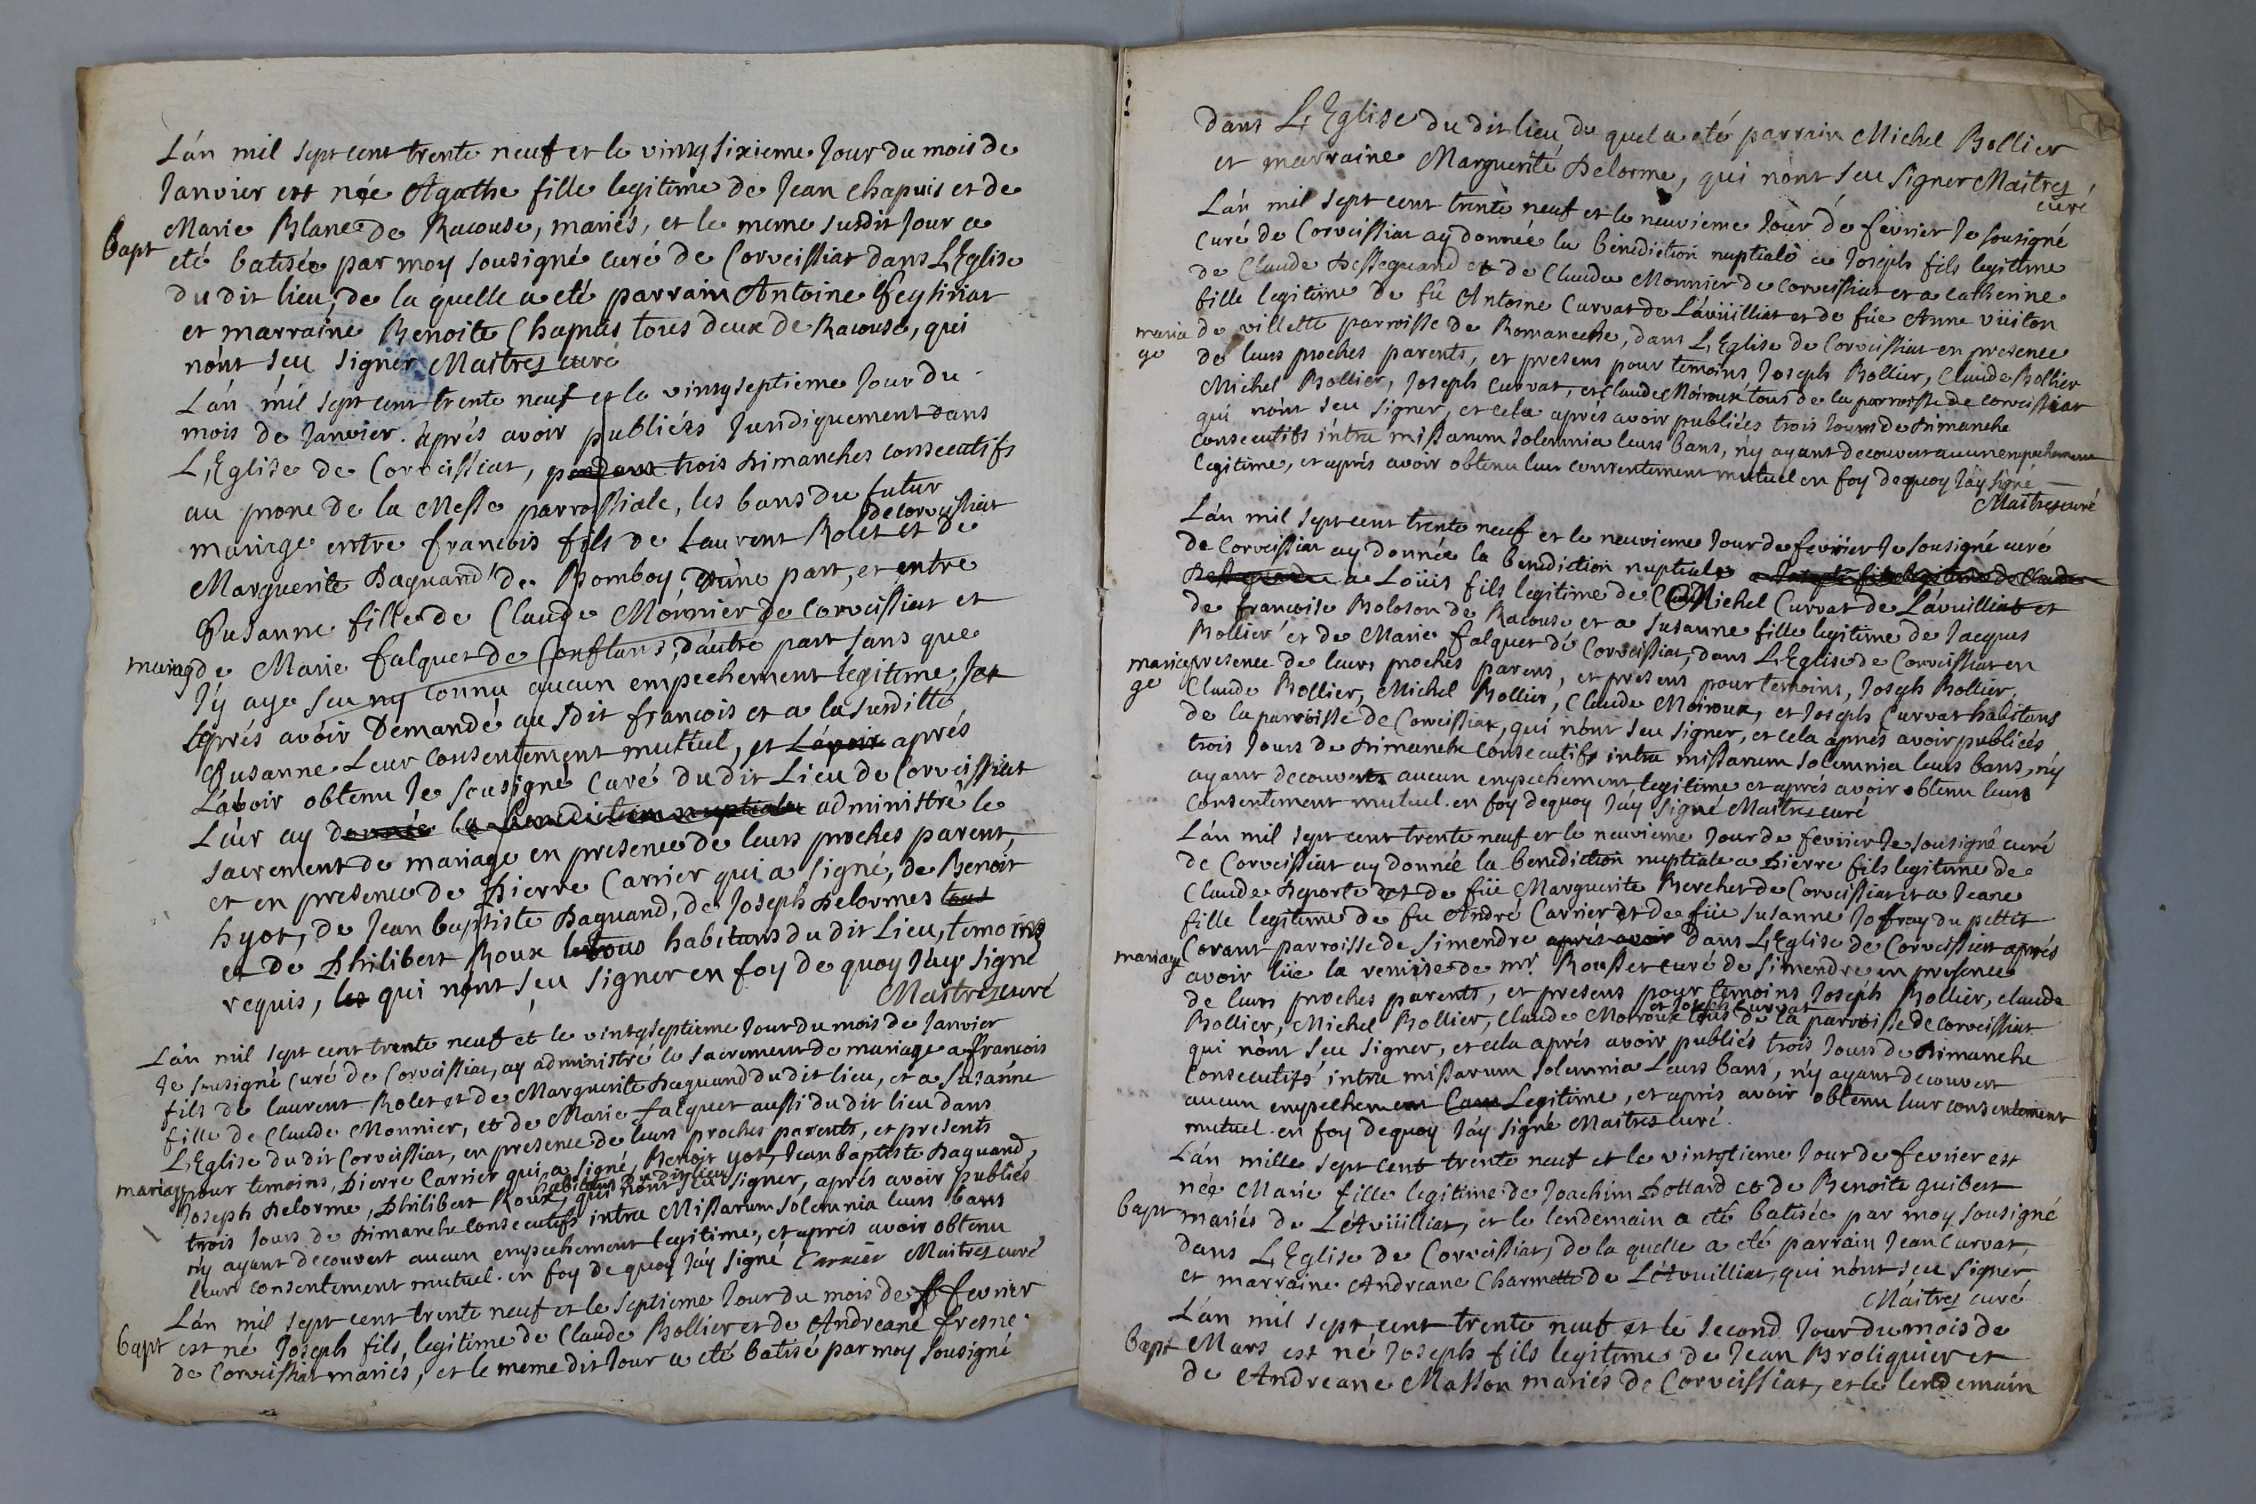 L'án mil sept cent trente neuf et le vintg sixieme Jour du mois de
Janvier est née Agathe fille legitime de Jean Chapuis et de
Marie Blanc de Racouse, mariés, et le meme susdit Jour a
bapt
eté batisée par moy sousigné curé de Corveissiat dans L'Eglise
du dit lieu, de la quelle a eté parrain Antoine
et marraine Benoite Chapuis tous deux de Racouse, qui
nónt seu signer Maitres curé
L'án mil sept cent trente neuf et le vintg septieme Jour du
mois de Janvier. áprés avoir publiées Juridiquement dans
L'Eglise de Corveissiat, pendant trois Dimanches consecutifs
au prone de la Messe parroissiale, les bans du futur
de corveissiat
mariage entre francois fils de Laurent Rolet et de
Marguerite Daguand de Bomboy d'úne part, et entre
Susanne fille de Claude Mónnier de Corveissiat et
mariag
de Marie falquet de Conflans, d'áutre part sans que
J'y aye seu ny connu aucun empechement legitime,
áprés avóir Demandé au sdit francois et a la susditte
Susanne Leur consentement mutuel, et Lávoir aprés
Lávoir obtenu Je sousigné Curé du dit Lieu de Corveissiat
Leur ay donnée la benediction nuptiale administré le
sacrement de mariage en presence de leurs proches parent,
et en presence de Pierre Carrier qui a signé, de Benoit
hyot, de Jean baptiste Daguand, de Joseph Delormes tous
et de Philibert Roux tous habitans du dit Lieu, temoins
requis, les qui nont seu signer en foy de quoy Jáy signé
Maitres curé
L'án mil sept cent trente neuf et le vintg septieme Jour du mois de Janvier
Je sousigné Curé de Corveissiat, ay administré le sacrement de mariage a francois
fils de laurent Rolet et de Marguerite Daguand du dit lieu, et a Susanne
fille de Claude Monnier, et de Marie falquet aussi du dit lieu dans
L'Eglise du dit Corveissiat, en presence de leurs proches parents, et presents
mariage
pour temoins, Pierre Carrier qui a signé, Benoit yot, Jean baptiste Daguand,
habitans du dit lieu
Joseph Delorme, Philibert Roux, qui nónt seu signer, aprés avoir publiés
trois Jours de Dimanche consecutifs intra Missarum solemnia leurs bans
n'y ayant decouvert aucun empechement legitime, et aprés avoir obtenu
leur consentement mutuel. en foy de quoy Jáy signé Carrier Maitres curé
L'án mil sept cent trente neuf et le septieme Jour du mois de fevrier
bapt
est né Joseph fils legitime de Claude Bollier et de Andreane fresne
de Corveissiat mariés, et le meme dit Jour a eté batisé par moy sousigné
dans L'Eglise du dit lieu du quel a eté parrain Michel Bollier
et marraine Marguerite Delorme, qui nónt seu signer Maitres
curé
L'án mil sept cent trente neuf et le neuvieme Jour de fevrier Je sousigné
Curé de Corveissiat ay donnée la benediction nuptiale a Joseph fils legitime
de Claude Desseguand et de Claude Monnier de Corveissiat et a catherine
fille legitime de fû Antoine Curvat de Lávuilliat et de fûe Anne vüiton
maria
ge
de villette parroisse de Romaneche, dans L'Eglise de Corveissiat en presence
de leurs proches parents, et presens pour temoins Joseph Bollier, Claude Bollier
Michel Bollier, Joseph Curvat, et Claude Moiroux tous de la parroisse de corveissiat
qui nónt seu signer, et cela aprés avoir publiées trois Jours de Dimanche
Consecutifs intra missarum solemnia leurs bans, n'y ayant decouvert aucun empechement
legitime, et aprés avoir obtenu leur consentement mutuel en foy de quoy Jáy signé
Maitres curé
L'án mil sept cent trente neuf et le neuvieme Jour de fevrier Je sousigné curé
de Corveissiat ay donnée la benediction nuptiale a Joseph fils legitime de Claude
Desseguand a Loüis fils legitime de Michel Curvat de Lávuilliat et
de francoise Boloson de Racouse et a Susanne fille legitime de Jacques
Bollier et de Marie falquet de Corveissiat, dans L'Eglise de Corveissiat en
maria
ge
presence de leurs proches parens, et presens pour temoins, Joseph Bollier,
Claude Bollier, Michel Bollier, Claude Moiroux, et Joseph Curvat habitans
de la parroisse de Corveissiat, qui nónt seu signer, et cela aprés avoir publiées
trois Jours de Dimanche consecutifs intra missarum solemnia leurs bans, n'y
ayant decouvert aucun empechement legitime et aprés avoir obtenu leurs
consentement mutuel. en foy de quoy Jáy signé Maitres curé
L'án mil sept cent trente neuf et le neuvieme Jour de fevrier Je sousigné curé
de Corveissiat ay donnée la benediction nuptiale a Pierre fils legitime de
Claude Deporte et de fûe Marguerite Berchet de Corveissiat et a Jeane
fille legitime de fu André Carrier et de fûe Susanne Joffray du pettit
mariage
Corant parroisse de Simendre aprés avoir dans L'Eglise de Corveissiat aprés
avoir lüe la remisse de mr. Rousset curé de Simendre en presence
de leurs proches parents, et presens pour temoins Joseph Bollier, claude
et Joseph Curvat
Bollier, Michel Bollier, Claude Moiroux tous de la parroisse de corveissiat
qui nónt seu signer, et cela aprés avoir publiés trois Jours de Dimanche
Consecutifs intra missarum solemnia Leurs bans, n'y ayant decouvert
aucun empechement Legitime, et aprés avoir obtenu leur consentement
mutuel. en foy de quoy Jáy signé Maitres curé.
L'án mille sept cent trente neuf et le vintgtieme Jour de fevrier est
née Marie fille legitime de Joachim Pottard et de Benoite guibert
bapt
mariés de Létvüilliat, et le lendemain a eté batisée par moy sousigné
dans L'Eglise de Corveissiat, de la quelle a eté parrain Jean Curvat
et marraine Andreane Charmette de Létvuilliat, qui nónt seu signer
Maitres curé
L'án mil sept cent trente neuf et le second Jour du mois de
bapt
Mars est né Joseph fils legitime de Jean Broliquier et
de Andreane Masson mariés de Corveissiat, et le lendemain